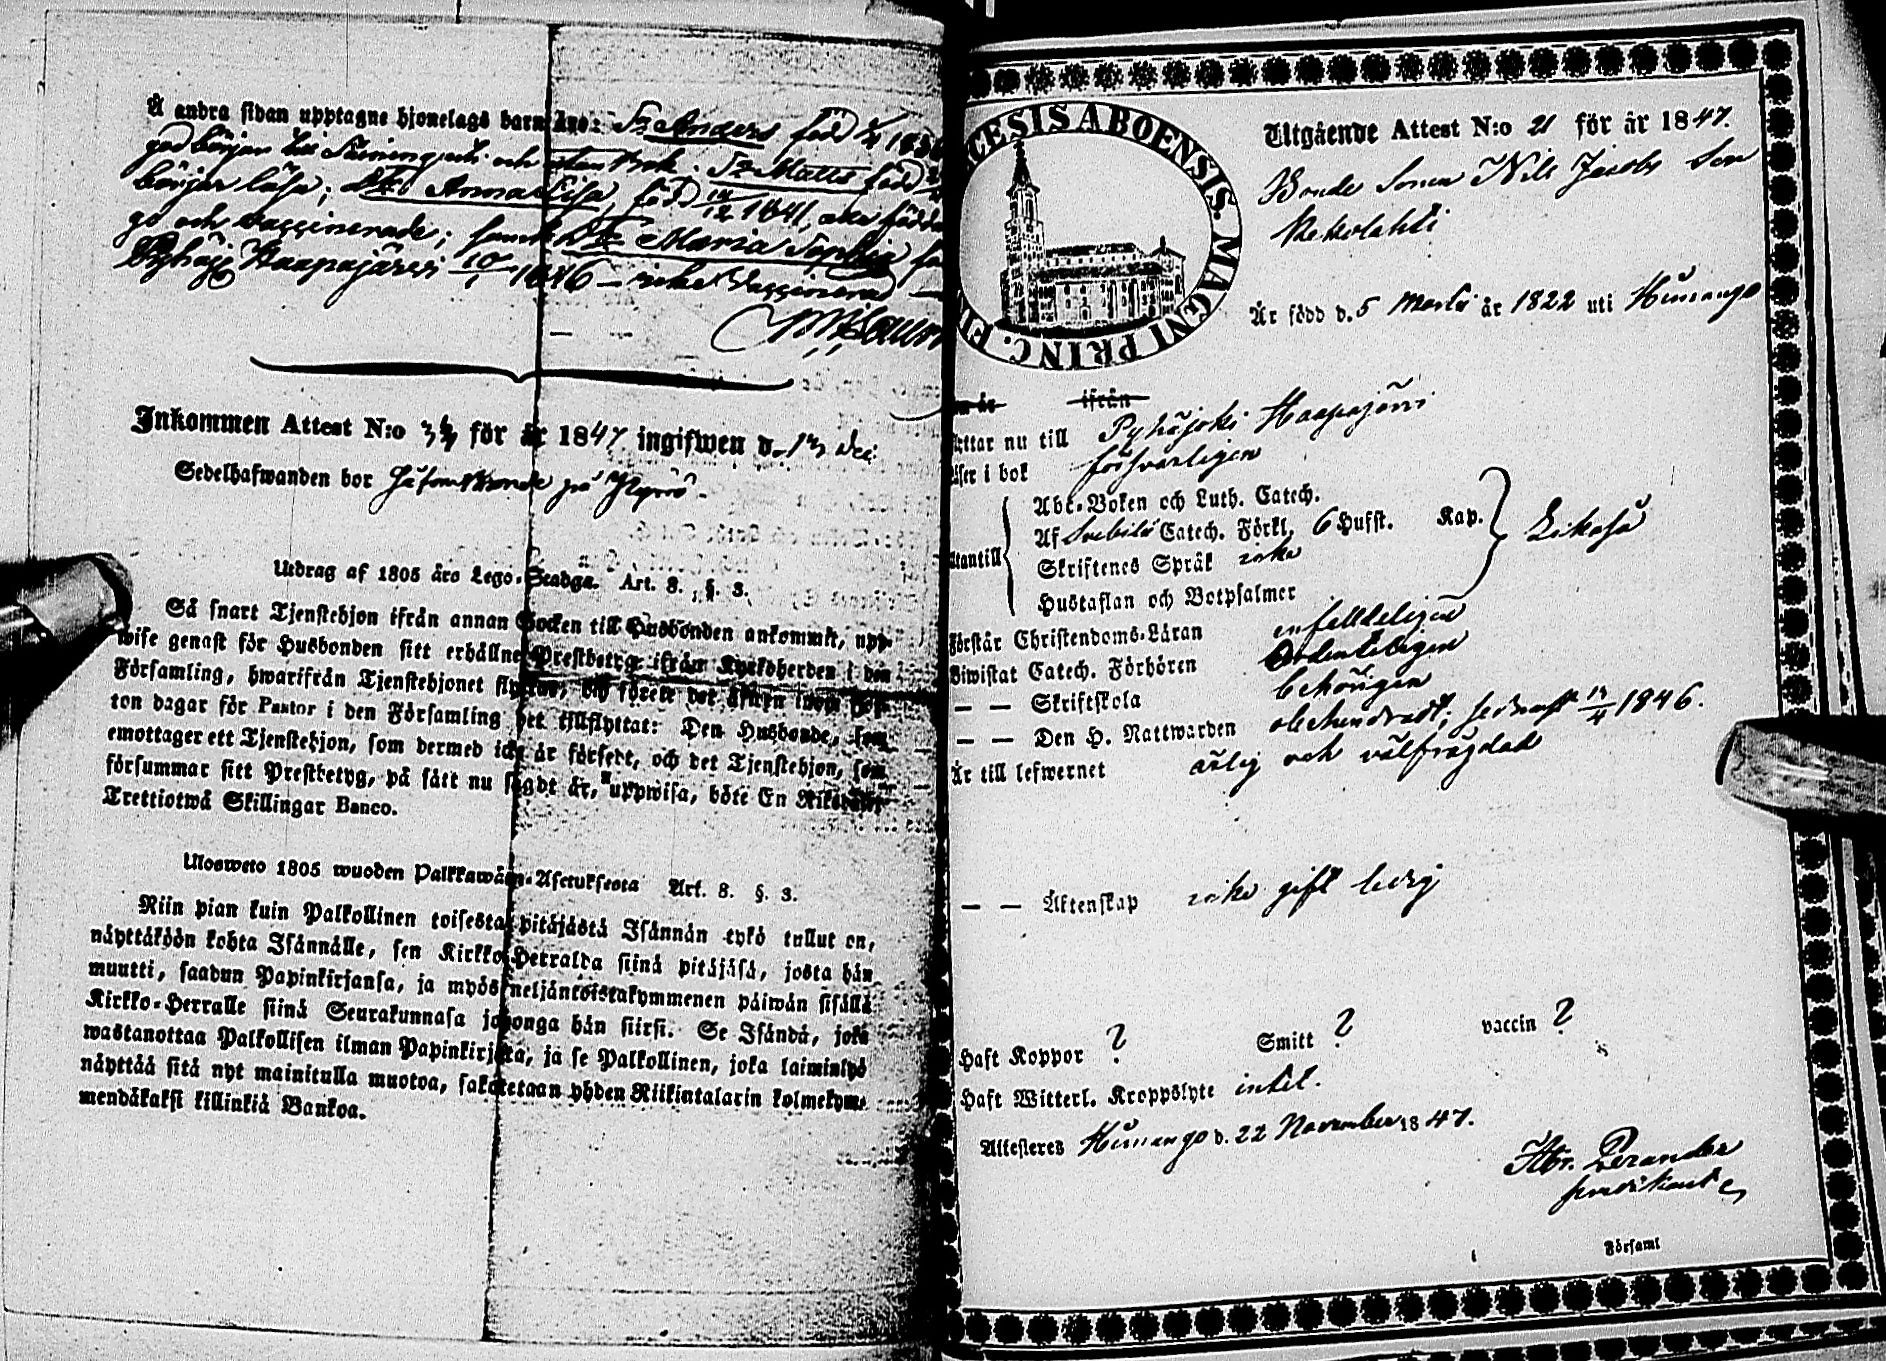 Å andra sidan upptagne hjonelags barn äro: Sn Anders född
Sn Matts född
börjar läsa; Anna Lisa, född 12 1841,
och vaccinerade; Maria Sophia
Haapajärvi 1846 — icke Vaccinerad —
Inkommen Attest N:o för år 1847 ingifwen d. 13 Dec:
Sedelhafwanden bor på
Utdrag af 1805 års Lego-Stadga. Art. 8. §. 3.
Så snart Tjenstehjon ifrån annan Socken till Husbonden ankommit, upp-
wise genast för Husbonden sitt erhållne Prestbetyg ifrån Kyrkoherden i den
Församling, hwarifrån Tjenstehjonet flyttat, och förete det äfwen inom fjor-
ton dagar för Pastor i den Församling det tillflyttat: Den Husbonde, som
emottager ett Tjenstehjon, som dermed icke är försedt, och det Tjenstehjon, som
försummar sitt Prestbetyg, på sätt nu sagdt är, uppwisa, böte En Riksdaler
Trettiotwå Skillingar Banco.
Ulosweto 1805 wuoden Palkkawäen-Asetuksesta Art. 8. §. 3.
Niin pian kuin Palkollinen toisesta pitäjästä Isännän tykö tullut on,
näyttäköön kohta Isännälle, sen Kirkko-Herralda siinä pitäjäsä, josta hän
muutti, saadun Papinkirjansa, ja myös neljäntoistakymmenen päiwän sisällä
Kirkko-Herralle siinä Seurakunnasa johonga hän siirsi. Se Isändä, joka
wastanottaa Palkollisen ilman Papinkirjata, ja se Palkollinen, joka laiminlyö
näyttää sitä nyt mainitulla muotoa, sakotetaan yhden Riikintalarin kolmekym-
mendäkaksi killinkiä Bankoa.
CESIS ABOENSIS. MAGNI PRINC. FI
Utgående Attest N:o 21 för år 1847.
Bonde Sonen Nils Jacobs Son
Kekolahti
Är född d. 5 Martii år 1822 uti Himango
år ifrån
ttar nu till Pyhäjoki Haapajärvi
äser i bok försvarligen
utantill
Abc-Boken och Luth. Catech.
Af Svebilii Catech. Förkl. 6 Hufst. Kap.
Skriftenes Språk icke
Hustaflan och Botpsalmer
Likaså
Förstår Christendoms-Läran enfalldeligen
Biwistat Catech. Förhören Ordenteligen
— — Skriftskola behörigen
— — Den H. Nattwarden obehindradt, sednast 13/4 1846.
Är till lefwernet ärlig och välfrägdad
— — Äktenskap icke gift ledig
Haft Koppor ? Smitt ? vaccin ?
Haft Witterl. Kroppslyte intet.
Attesteres Himango d. 22 November 1847.
Abr. Perander
predikant
Församl